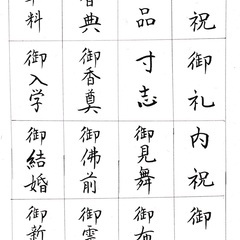 祝
御礼
内祝
御
品
寸志
御見舞
御布
香典
御香奠
御佛前
御霊
料
御入学
御結婚
御新